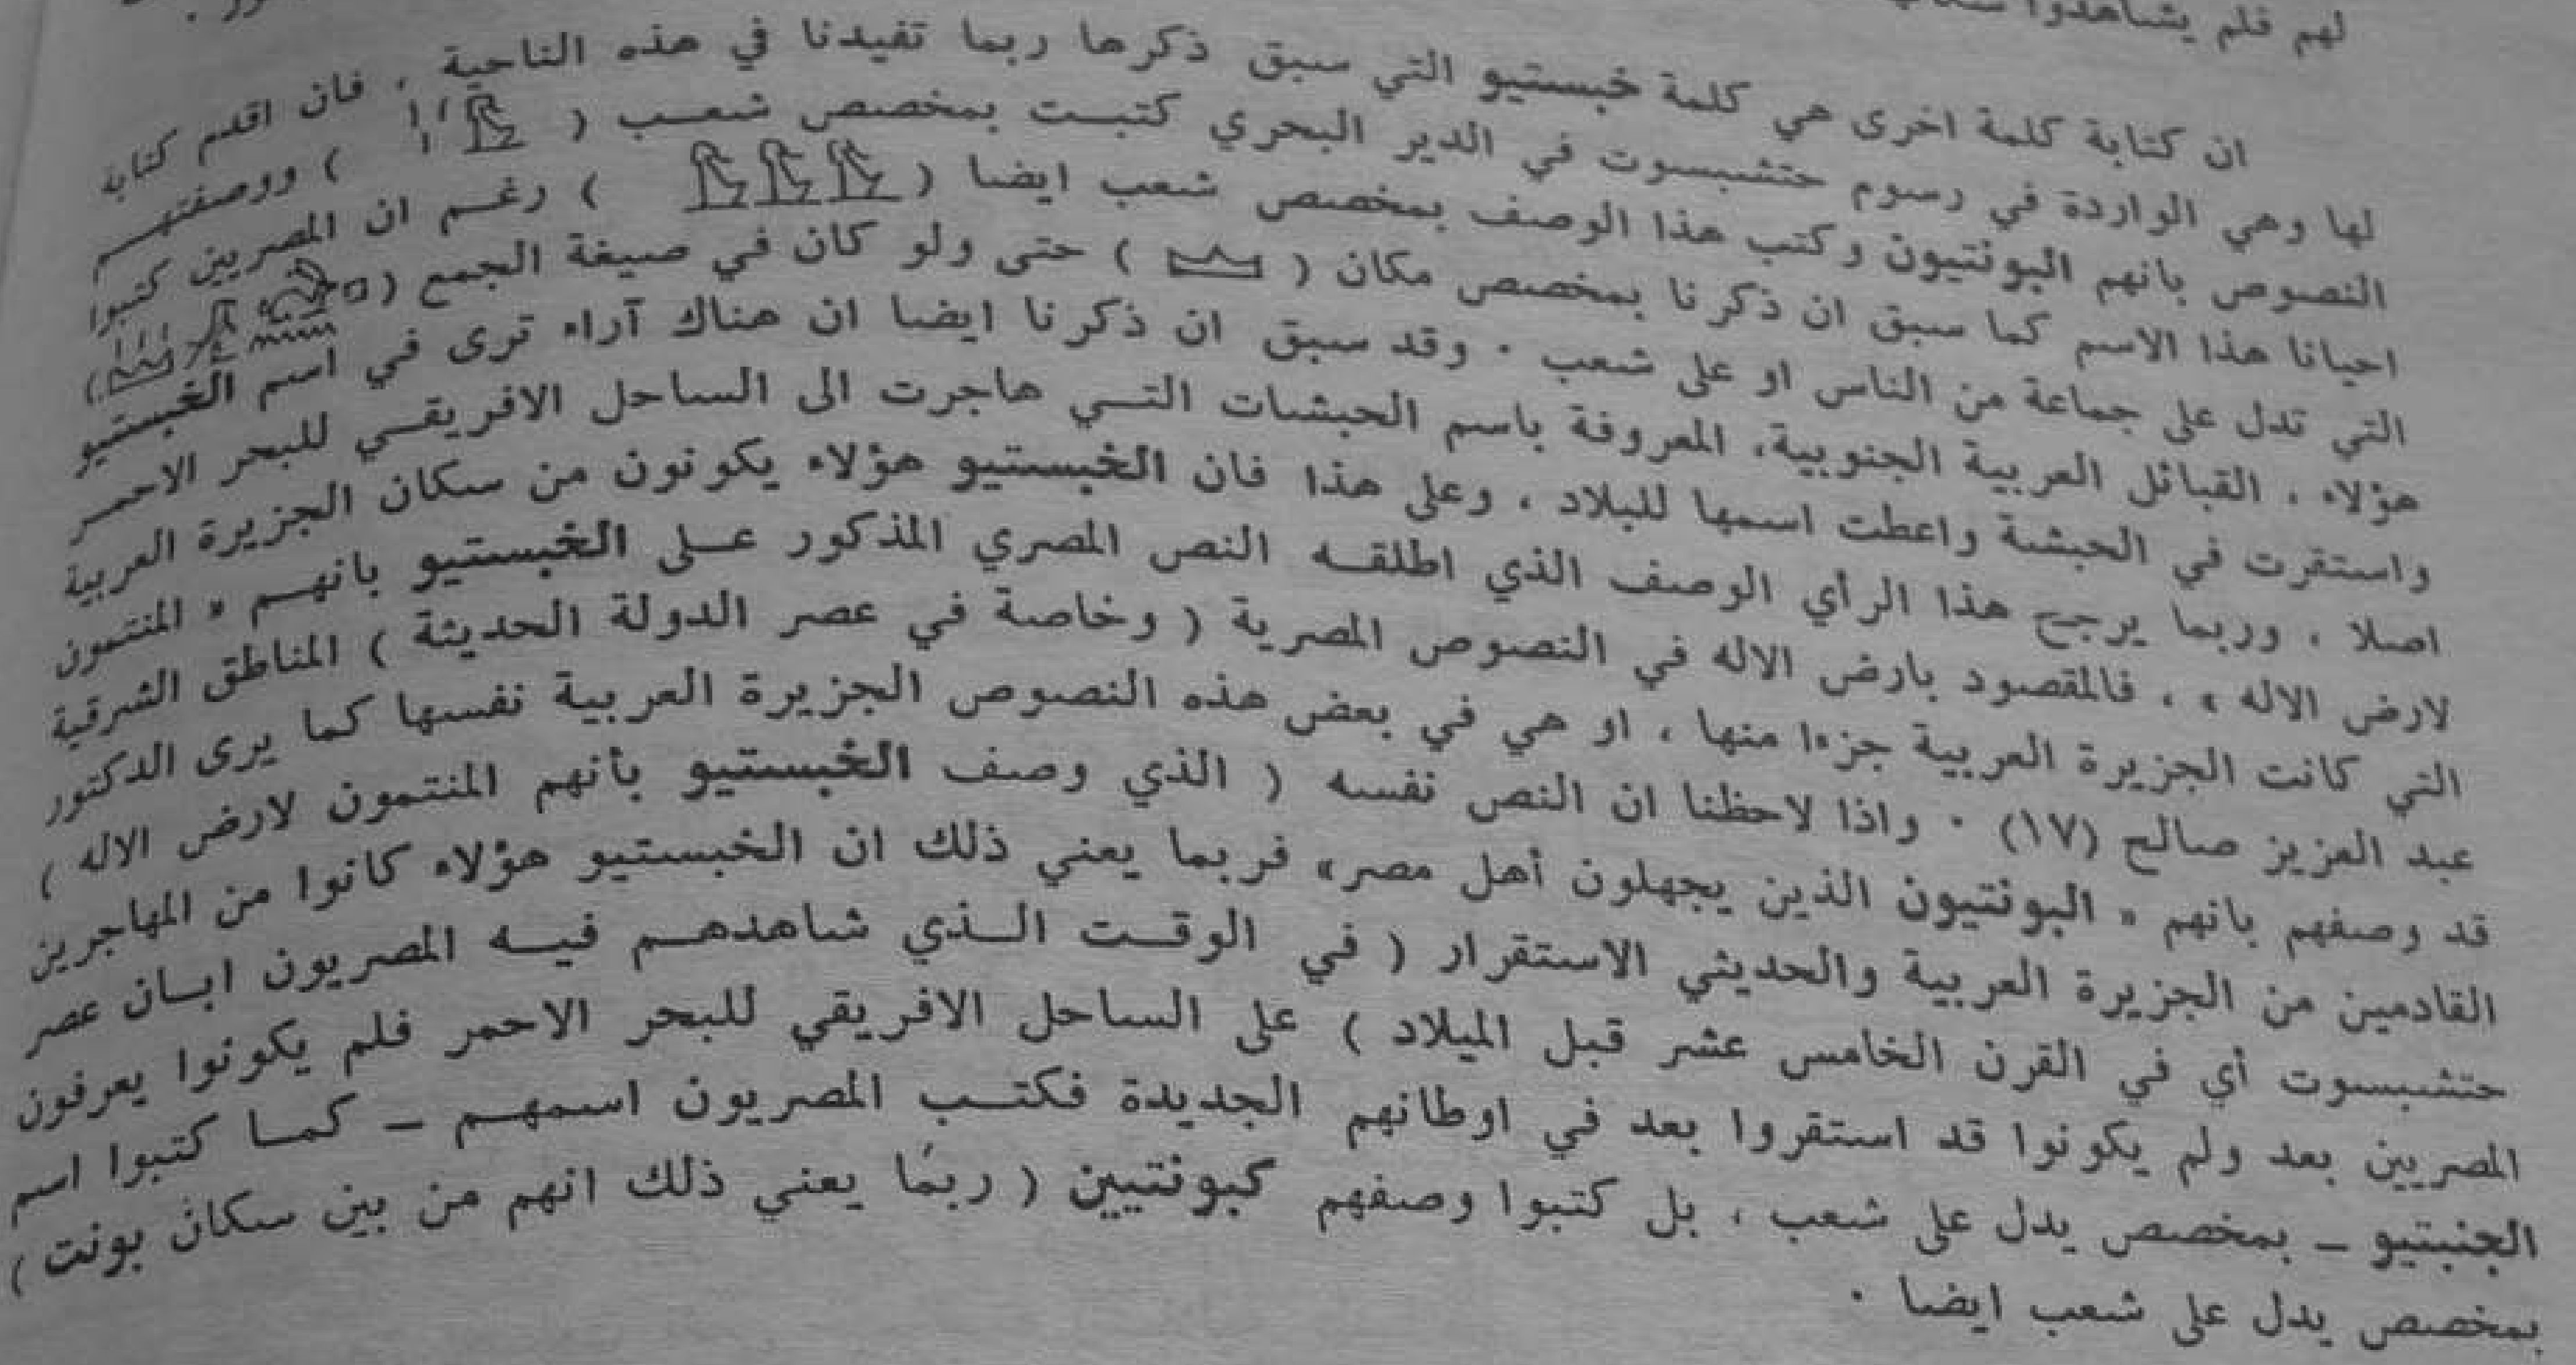 لهم فلم يشاهدوا
ان كتابة كلمة اخرى هي كلمة خبستيو التي سبق ذكرها ربما تفيدنا في هذه الناحية ، فان اقدم كتابة
لها وهي الواردة في رسوم حتشبسوت في الدير البحري كتبت بمخصص شعب ( ) ووصفتهم
النصوص بانهم البونتيون وكتب هذا الوصف بمخصص شعب ايضا ( ) رغم ان المصريين كتبوا
احيانا هذا الاسم كما سبق ان ذكرنا بمخصص مكان ( ) حتى ولو كان في صيغة الجمع ( )
التي تدل على جماعة من الناس او على شعب . وقد سبق ان ذكرنا ايضا ان هناك آراء ترى في اسم الخبستيو
هؤلاء ، القبائل العربية الجنوبية، المعروفة باسم الحبشات التي هاجرت الى الساحل الافريقي للبحر الاحمر
واستقرت في الحبشة واعطت اسمها للبلاد ، وعلى هذا فان الخبستيو هؤلاء يكونون من سكان الجزيرة العربية
اصلا ، وربما يرجح هذا الرأي الوصف الذي اطلقه النص المصري المذكور على الخبستيو بانهم « المنتمون
لارض الاله » ، فالمقصود بارض الاله في النصوص المصرية ( وخاصة في عصر الدولة الحديثة ) المناطق الشرقية
التي كانت الجزيرة العربية جزءا منها ، او هي في بعض هذه النصوص الجزيرة العربية نفسها كما يرى الدكتور
عبد العزيز صالح (١٧) . واذا لاحظنا ان النص نفسه ( الذي وصف الخبستيو بأنهم المنتمون لارض الاله )
قد وصفهم بانهم « البونتيون الذين يجهلون أهل مصر» فربما يعني ذلك ان الخبستيو هؤلاء كانوا من المهاجرين
القادمين من الجزيرة العربية والحديثي الاستقرار ( في الوقت الذي شاهدهم فيه المصريون ابان عصر
حتشبسوت أي في القرن الخامس عشر قبل الميلاد ) على الساحل الافريقي للبحر الاحمر فلم يكونوا يعرفون
المصريين بعد ولم يكونوا قد استقروا بعد في اوطانهم الجديدة فكتب المصريون اسمهم – كما كتبوا اسم
الجنبتيو – بمخصص يدل على شعب ، بل كتبوا وصفهم كبونتيين ( ربما يعني ذلك انهم من بين سكان بونت )
بمخصص يدل على شعب ايضا .